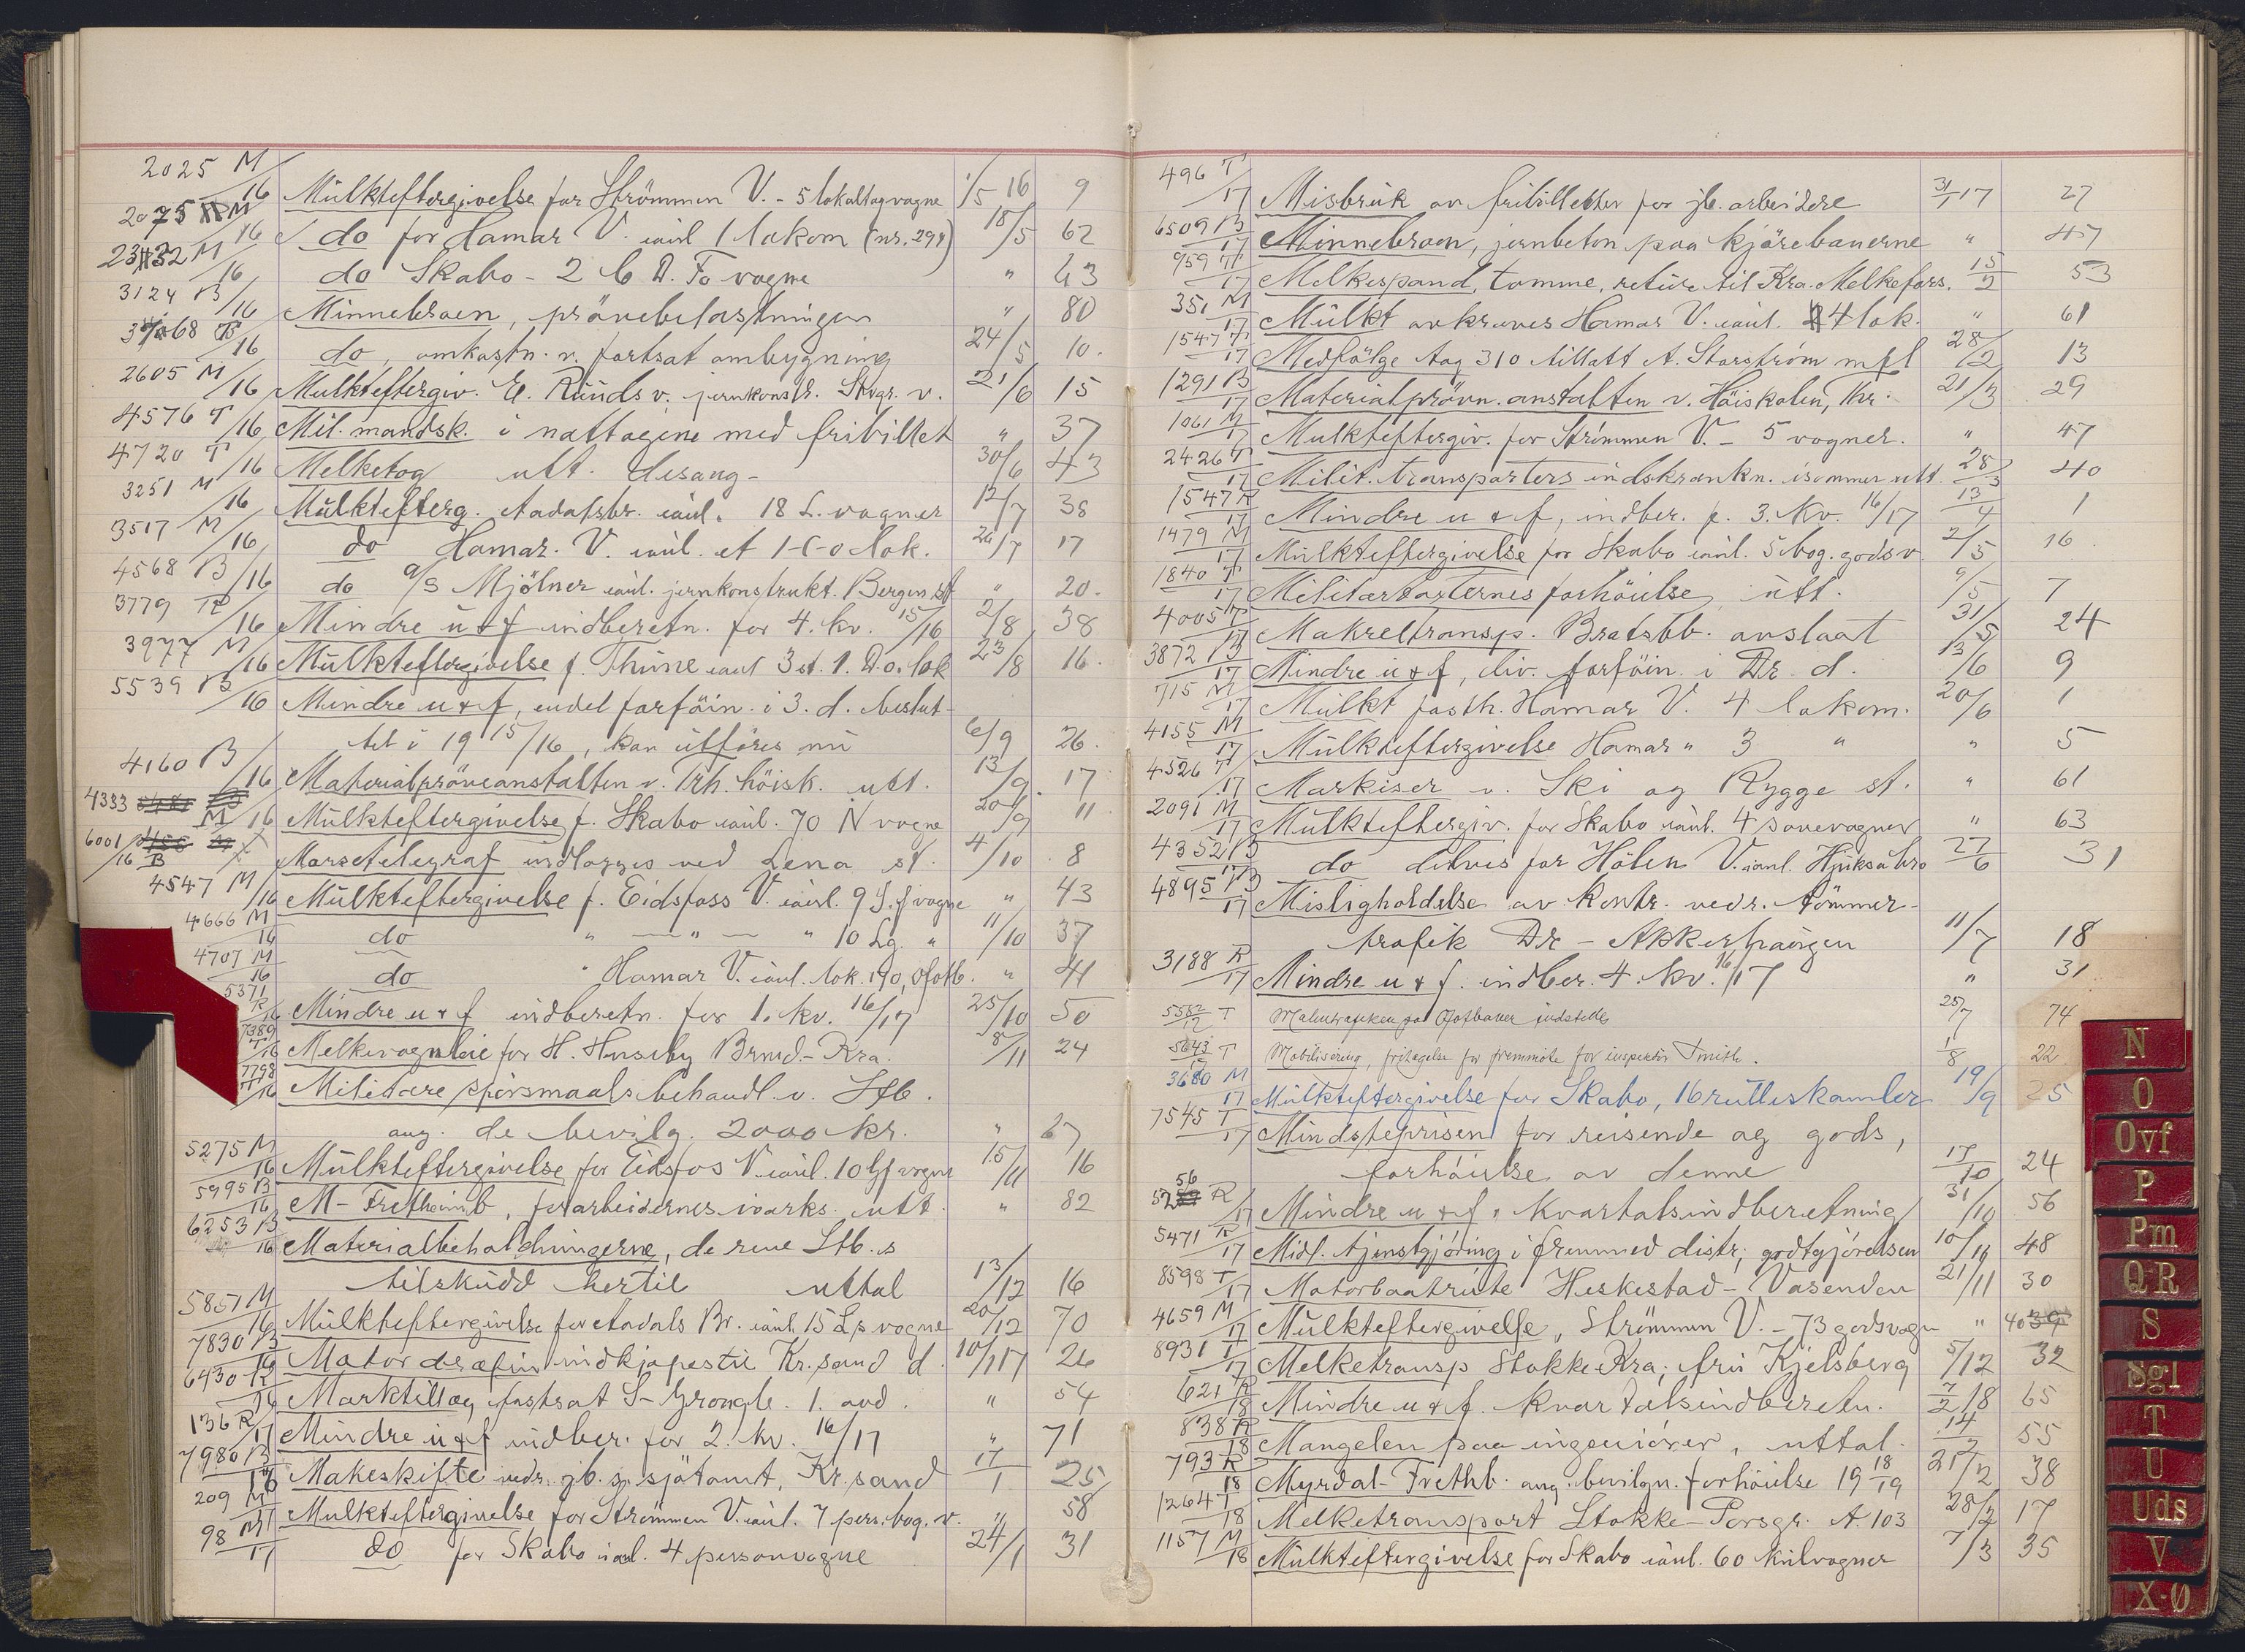 2025 M/16 Mulkteftergivelse for Strömmen V. - 5 lokaltogvagne 1/5 16 9
2075 M/16 do for Hamar V. 1 lokom (nr. 294) 18/5 62
2332 M/16 do Skabo - 2 vogne " 63
3124 B/16 Minnebroen, prövebelastningen " 80
68 B/16 do, omkostn. v. fortsat ombygning 24/5 10.
2605 M/16 Mulkteftergiv. E. Runds v. jernkonstr. v. 21/6 15
4576 T/16 Mil. mandsk. i nattogene med fribillet " 37
4720 T/16 Melketog utt. 30/6 43
3251 M/16 Mulktefterg. Aadalsbr. 18 L. vagner 12/7 38
3517 M/16 do Hamar. V. et 1-C-0 lok. 26/7 17
4568 B/16 do a/s Mjölner jernkonstrukt. Bergen st " 20.
3779 R/16 Mindre u & f indberetn. for 4. kv. 15/16 2/8 38
3977 M/16 Mulkteftergivelse f. Thune 3 st. 1. D. o. lok 23/8 16.
5539 B/16 Mindre u & f, endel forföin. i 3. d. beslut-
tet i 19 15/16, kan utföres nu 6/9 26.
4160 B/16 Materialpröveanstalten v. Trh. höisk. utt. 13/9. 17
4333 M/16 Mulkteftergivelse f. Skabo 70 N vogne 20/9 11
6001/16 B Morsetelegraf indlægges ved Lena st. 4/10 8
4547 M/16 Mulkteftergivelse f. Eidsfoss V. 9 vogne " 43
4666 M/16 do " — " — " 10 Lg. " 11/10 37
4707 M/16 do " Hamar V. lok. 170, Ofotb. " 41
5371 R/16 Mindre u & f indberetn. for 1. kv. 16/17 25/10 50
7389 T/16 Melkevognleie for H. Huseby Brmd. - Kra. 8/11 24
7798 T/16 Militære spörsmaals behandl. v. Stb.
ang. de bevilg. 2000 kr. " 67
5275 M/16 Mulkteftergivelse for Eidsfos V. 10 vogne 15/11 16
5995 B/16 M - Fretheimb, forarbeidernes iverks. utt. " 82
6253 B/16 Materialbeholdningerne, Stb.s
tilskudd hertil uttal 13/12 16
5851 M/16 Mulkteftergivelse for Aadals Br. 15 Ls vogne 20/12 70
7830 B/16 Motor indkjøpes til Kr.sand d. 10/1 17 26
6430 R/16 Marktillæg fastsat S - Grongb. 1. avd. " 54
136 R/17 Mindre u & f indber. for 2. kv. 16/17 " 71
7980 B/16 Makeskifte vedr. jb. gr. sjötomt, Kr.sand 17/1 25
209 M/17 Mulkteftergivelse for Strömmen V. 7 pers. bog. v. " 58
98 M/17 do for Skabo 4 personvogne 24/1 31
496 T/17 Misbruk av fribilletter for jb. arbeidere 31/1 17 27
6509 B/17 Minnebroen, jernbeton paa kjörebanerne " 47
959 T/17 Melkespand, tomme, retur til Kra. Melkefors. 15/2 53
351 M/17 Mulkt avkræves Hamar V. 4 lok. " 61
1547 T/17 Medfölge tog 310 tillatt A. Storström m fl 28/2 13
1291 B/17 Materialprövn. anstalten v. Höiskolen, Thr. 21/3 29
1061 M/17 Mulkteftergiv. for Strömmen V. - 5 vogner. " 47
2426 T/17 Milit. transporters indskrænkn. i sommer utt. 28/3 40
1547 R/17 Mindre u & f, indber. f. 3. kv. 16/17 13/4 1
1479 M/17 Mulkteftergivelse for Skabo 5 bog. godsv. 2/5 16
1840 T/17 Militærtaxternes forhöielse, utt. 9/5 7
4005 T/17 Makreltransp. Bratsbb. avslaat 31/5 24
3872 B/17 Mindre u & f, div. forföin. i Dr. d. 13/6 9
715 M/17 Mulkt fasth. Hamar V. 4 lokom. 20/6 1
4155 M/17 Mulkteftergivelse Hamar " 3 " " 5
4526 T/17 Markiser v. Ski og Rygge st. " 61
2091 M/17 Mulkteftergiv. for Skabo 4 sovevogner " 63
4352 B/17 do delves for Hölen V. Hjuksabro 27/6 31
4895 B/17 Misligholdelse av kontr. vedr. tömmer-
trafik Dr - Akkerhaugen 11/7 18
3188 R/17 Mindre u & f. indber. 4. kv. 16/17 " 31
5582/17 T Malmtrafiken på Ofotbanen indstilles 25/7 74
5643/17 T Mobilisering, fritagelse for fremmöte for inspektör Smith. 1/8 22
3680 M/17 Mulkteftergivelse for Skabo, 16 rulleskamler 19/9 25
7545 T/17 Mindsteprisen for reisende og gods,
forhöielse av denne 15/10 24
5256 R/17 Mindre u & f. kvartalsindberetning 31/10 56
5471 R/17 Midl. tjenstgjöring i fremmed distr; godtgjörelsen 10/10 48
8598 T/17 Motorbaatrute Heskestad - Vasenden 21/11 30
4659 M/17 Mulkteftergivelse, Strömmen V. - 73 godsvogn " 40
8931 T/17 Melketransp Stokke Kra; fru Kjelsberg 5/12 32
621 R/18 Mindre u & f. kvartalsindberetn. 7/2 18 65
838 R/18 Mangelen paa ingeniörer, uttal. 14/2 55
793 R/18 Myrdal - Frethb. ang. bevilgn. forhöielse 19 18/19 21/2 38
1264 T/18 Melketransport Stokke - Porsgr. A. 103 28/2 17
1157 M/18 Mulkteftergivelse for Skabo 60 kulvogner 7/3 35
N
O
Ovf
P
Pm
Q R
S
Sgl
T
U
Uds
V
X-Ø